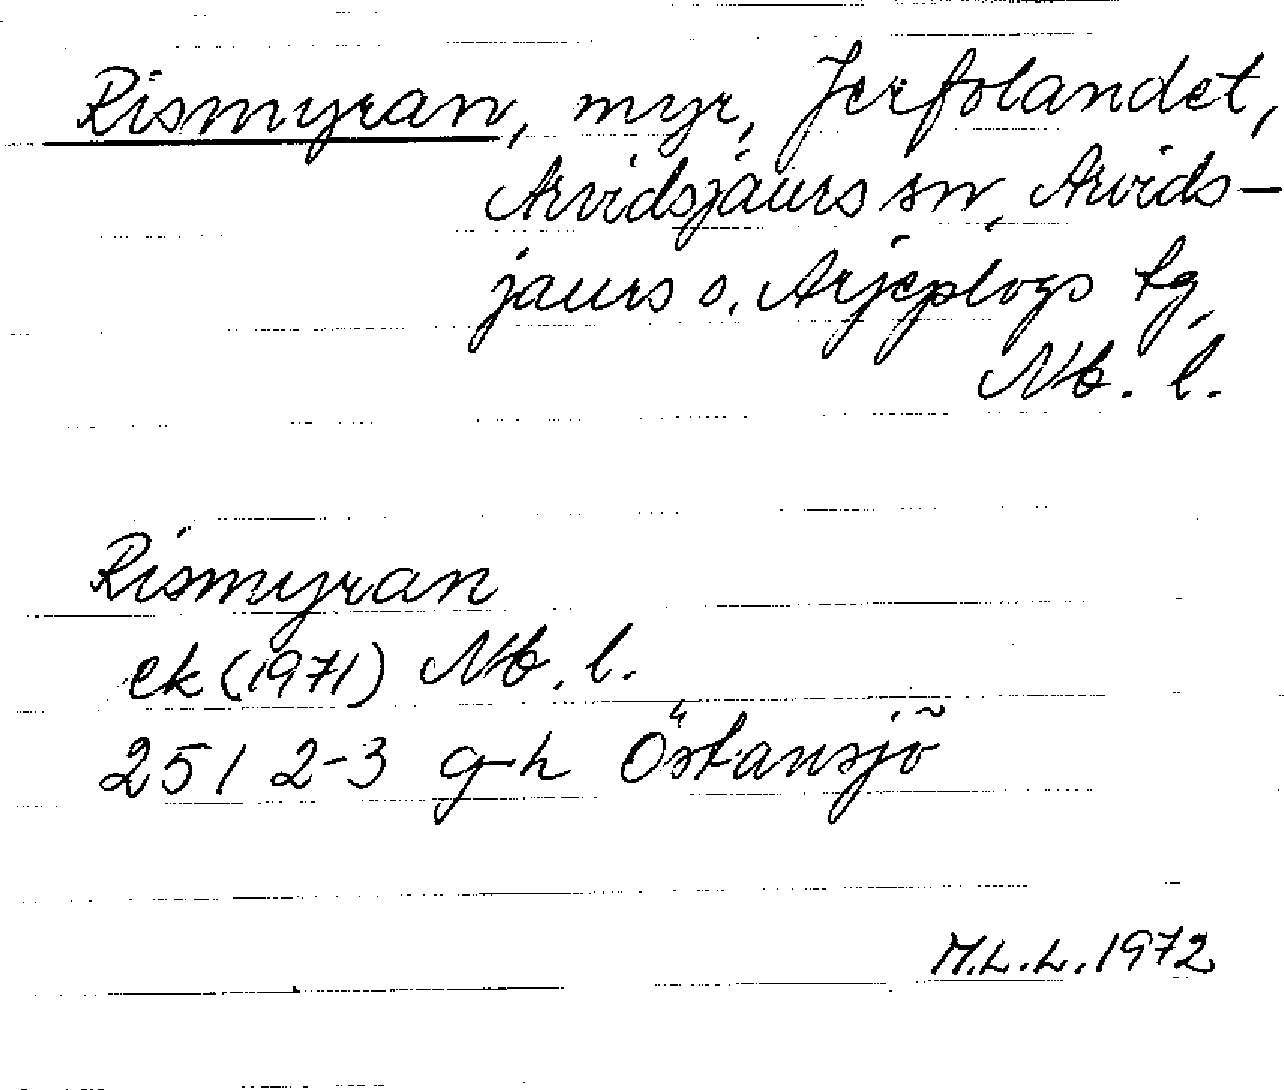 Rismyran, myr, Jerfolandet,
Arvidsjaurs sn, Arvids-
jaurs o. Arjeplogs tg,
Nb. l.
Rismyran
ek (1971) Nb. l.
25 I 2-3 g-h Östansjö
M.L.L. 1972